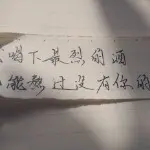 喝下最烈的酒
能熬过没有你的